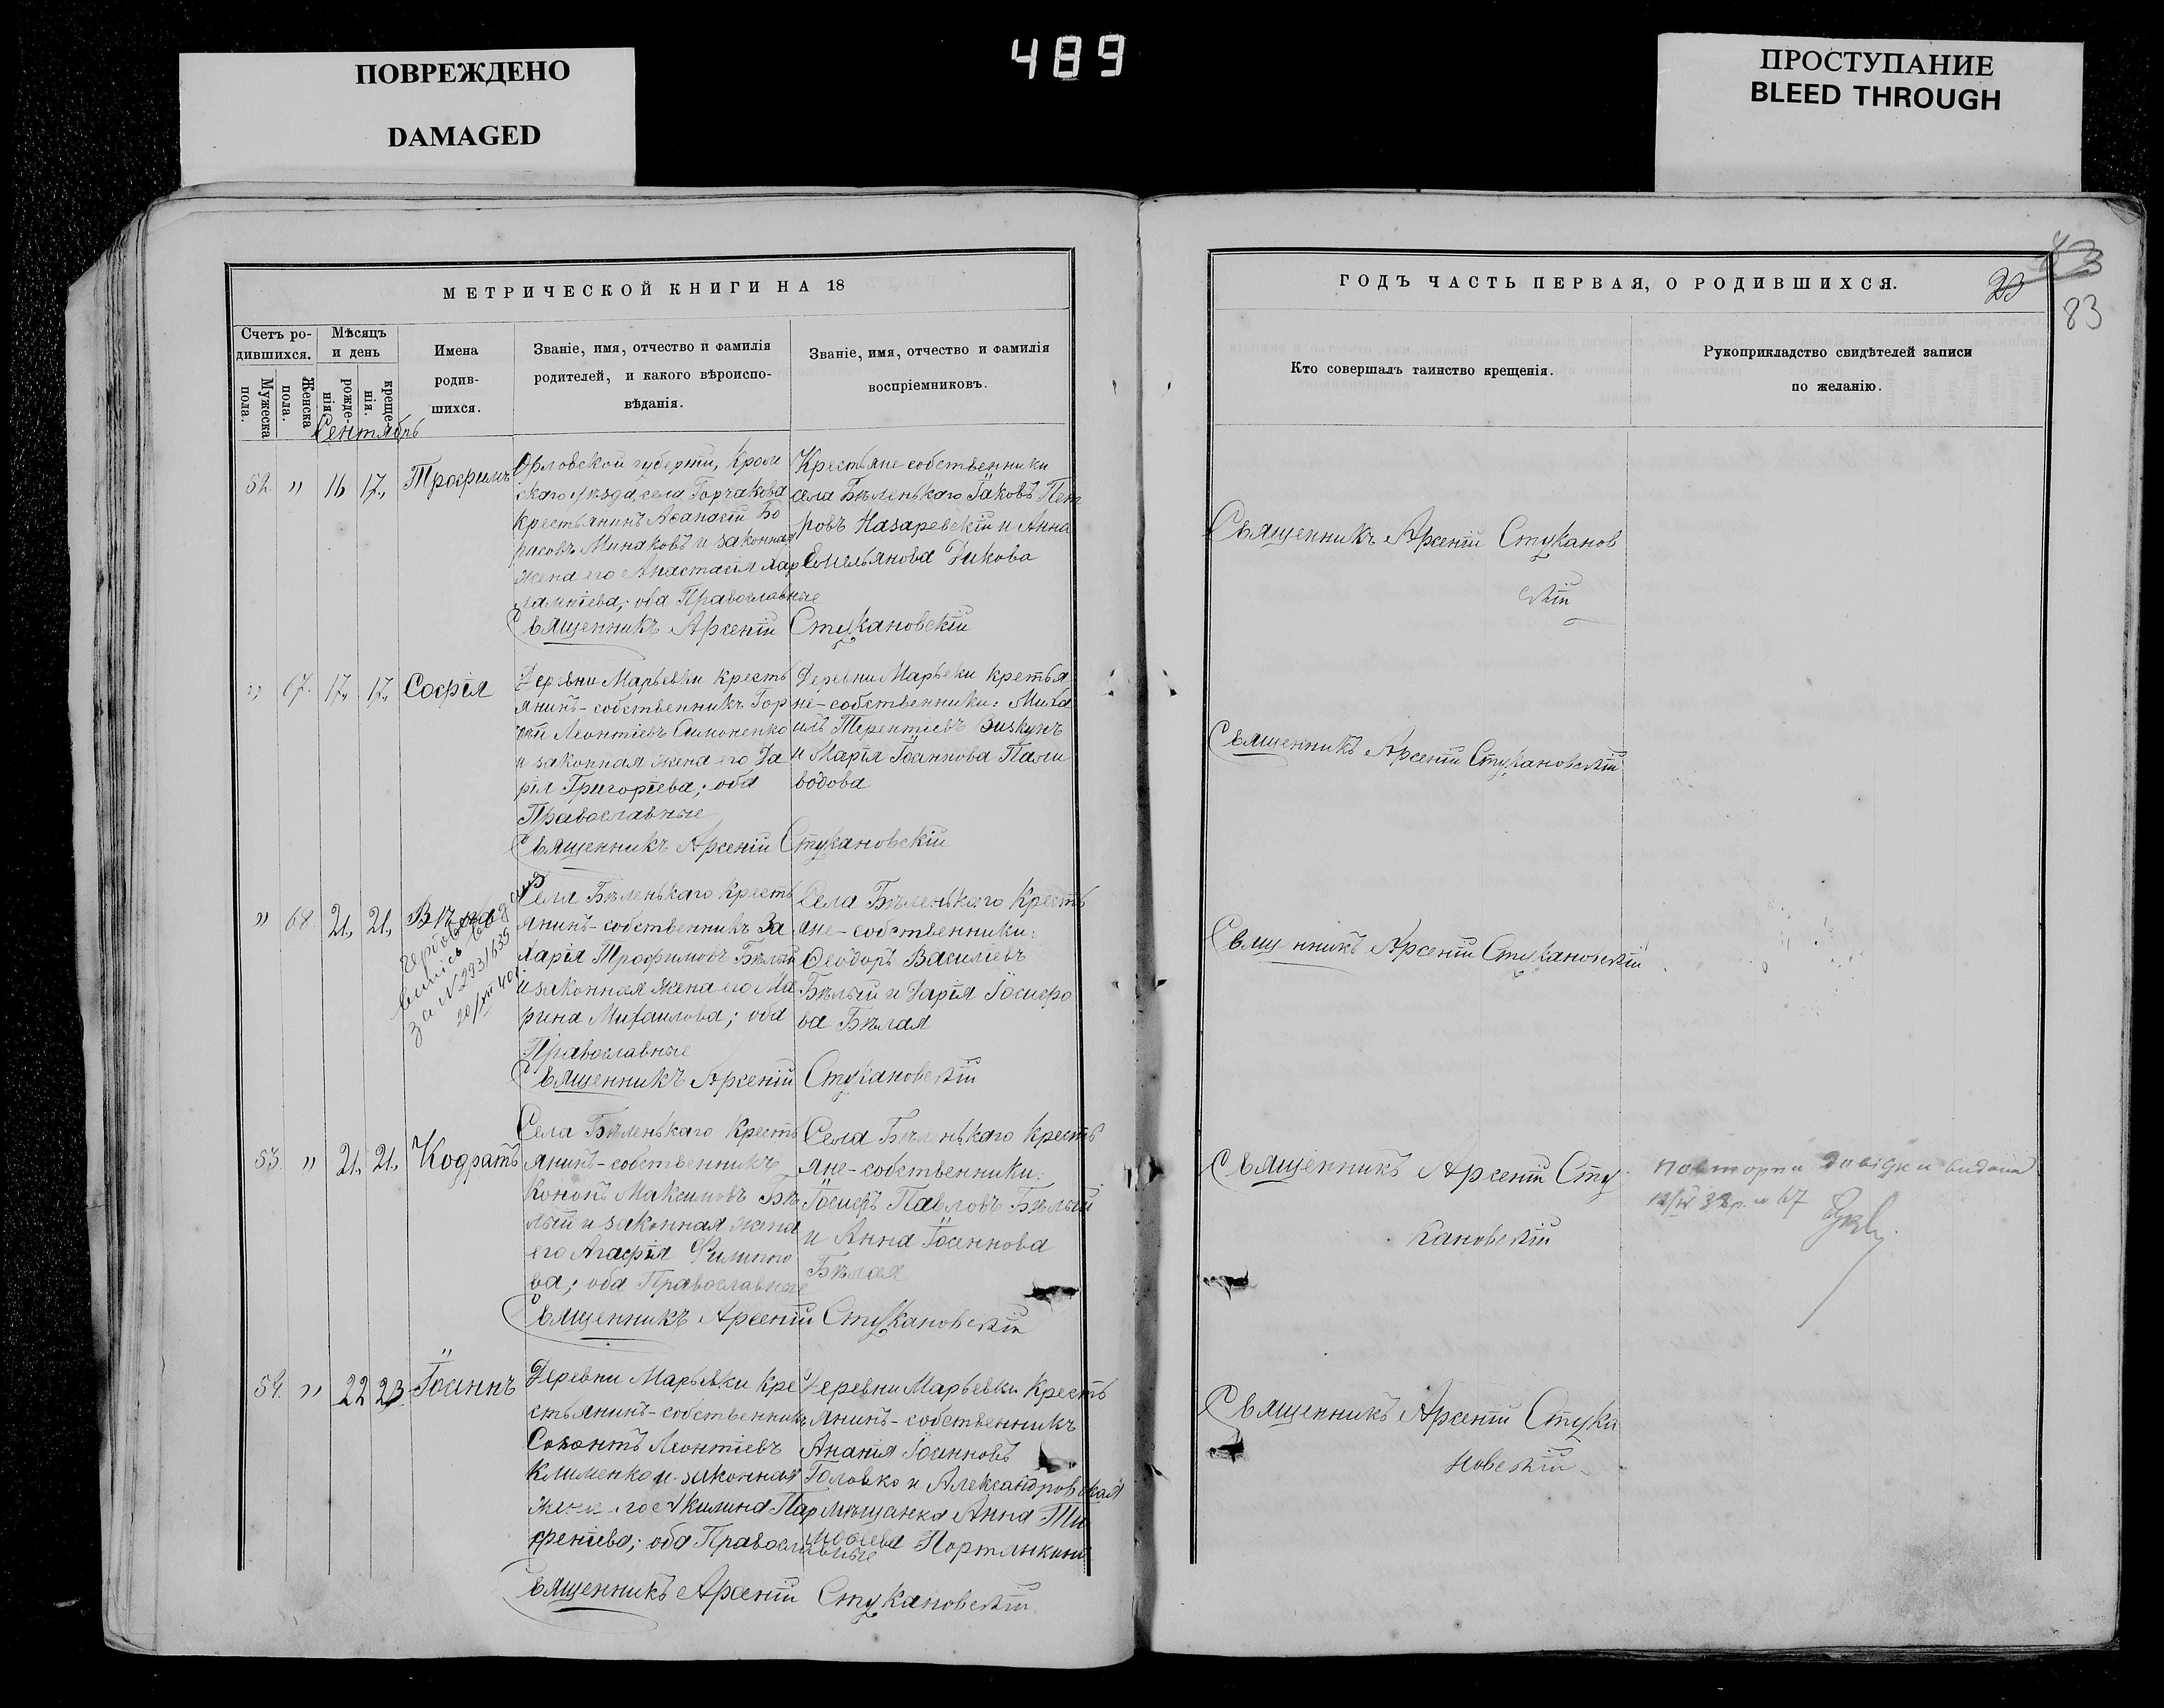 ПОВРЕЖДЕНО
DAMAGED
489
ПРОСТУПАНИЕ
BLEED THROUGH
МЕТРИЧЕСКОЙ КНИГИ НА 18
Счетъ ро-
дившихся.
Мужеска
пола.
Женска
пола.
Мѣсяцъ
и день
рожде-
нія.
креще-
нія.
Имена
родив-
шихся.
Званіе, имя, отчество и фамилія
родителей, и какого вѣроиспо-
вѣданія.
Званіе, имя, отчество и фамилія
воспріемниковъ.
Сентябрь
52. " 16 17. Трофимъ
Орловской губерніи, Кром
скаго уѣзда, села Горчакова
крестьянинъ Аѳанасій Бо
рисовъ Минаковъ и законная
жена его Анастасія Хар
лампіева; оба Православные
Крестьяне собственники
села Бѣленькаго Іаковъ Пет
ровъ Назаревскій и Анна
Емельянова Дикова
Священникъ Арсеній Стукановскій
" 67. 17. 17. Софія
Деревни Марьевки кресть
янинъ-собственникъ Гор
дѣй Леонтіевъ Симоненко
и законная жена его Да
рія Григоріева; оба
Православные
Деревни Марьевки крестья
не-собственники: Миха
илъ Терентіевъ Визкунъ
и Марія Іоаннова Пали
водова
Священникъ Арсеній Стукановскій
" 68. 21. 21. Вѣра
випись
за № 293/635
20/III 40
Села Бѣленькаго Кресть
янинъ-собственникъ За
харія Трофимовъ Бѣлый
и законная жена его Ма
рина Михаилова; оба
Православные
Села Бѣленькаго Кресть
яне-собственники:
Ѳеодоръ Василіевъ
Бѣлый и Дарія Іосифо
ва Бѣлая
Священникъ Арсеній Стукановскій
53. " 21. 21. Кодратъ
Села Бѣленькаго Кресть
янинъ-собственникъ
Кононъ Максимовъ Бѣ
лый и законная жена
его Агафія Филиппо
ва; оба Православные
Села Бѣленькаго Кресть
яне-собственники:
Іосифъ Павловъ Бѣлый
и Анна Іоаннова
Бѣлая
Священникъ Арсеній Стукановскій
54. " 22 23. Іоаннъ
Деревни Марьевки Кре
стьянинъ-собственникъ
Созонтъ Леонтіевъ
Клименко и законная
жена его Акилина Пар
феніева; оба Православные
Деревни Марьевки Кресть
янинъ-собственникъ
Ананія Іоанновъ
Головко и Александровская
мѣщанка Анна Ти
моѳеева Портянкина
Священникъ Арсеній Стукановскій
ГОДЪ ЧАСТЬ ПЕРВАЯ, О РОДИВШИХСЯ.
23
83
Кто совершалъ таинство крещенія.
Рукоприкладство свидѣтелей записи
по желанію.
Священникъ Арсеній Стуканов
скій
Священникъ Арсеній Стукановскій
Священникъ Арсеній Стукановскій
Священникъ Арсеній Сту
кановскій
Повторна довідка видана
12/IV 32р. № 67
Священникъ Арсеній Стука
новскій